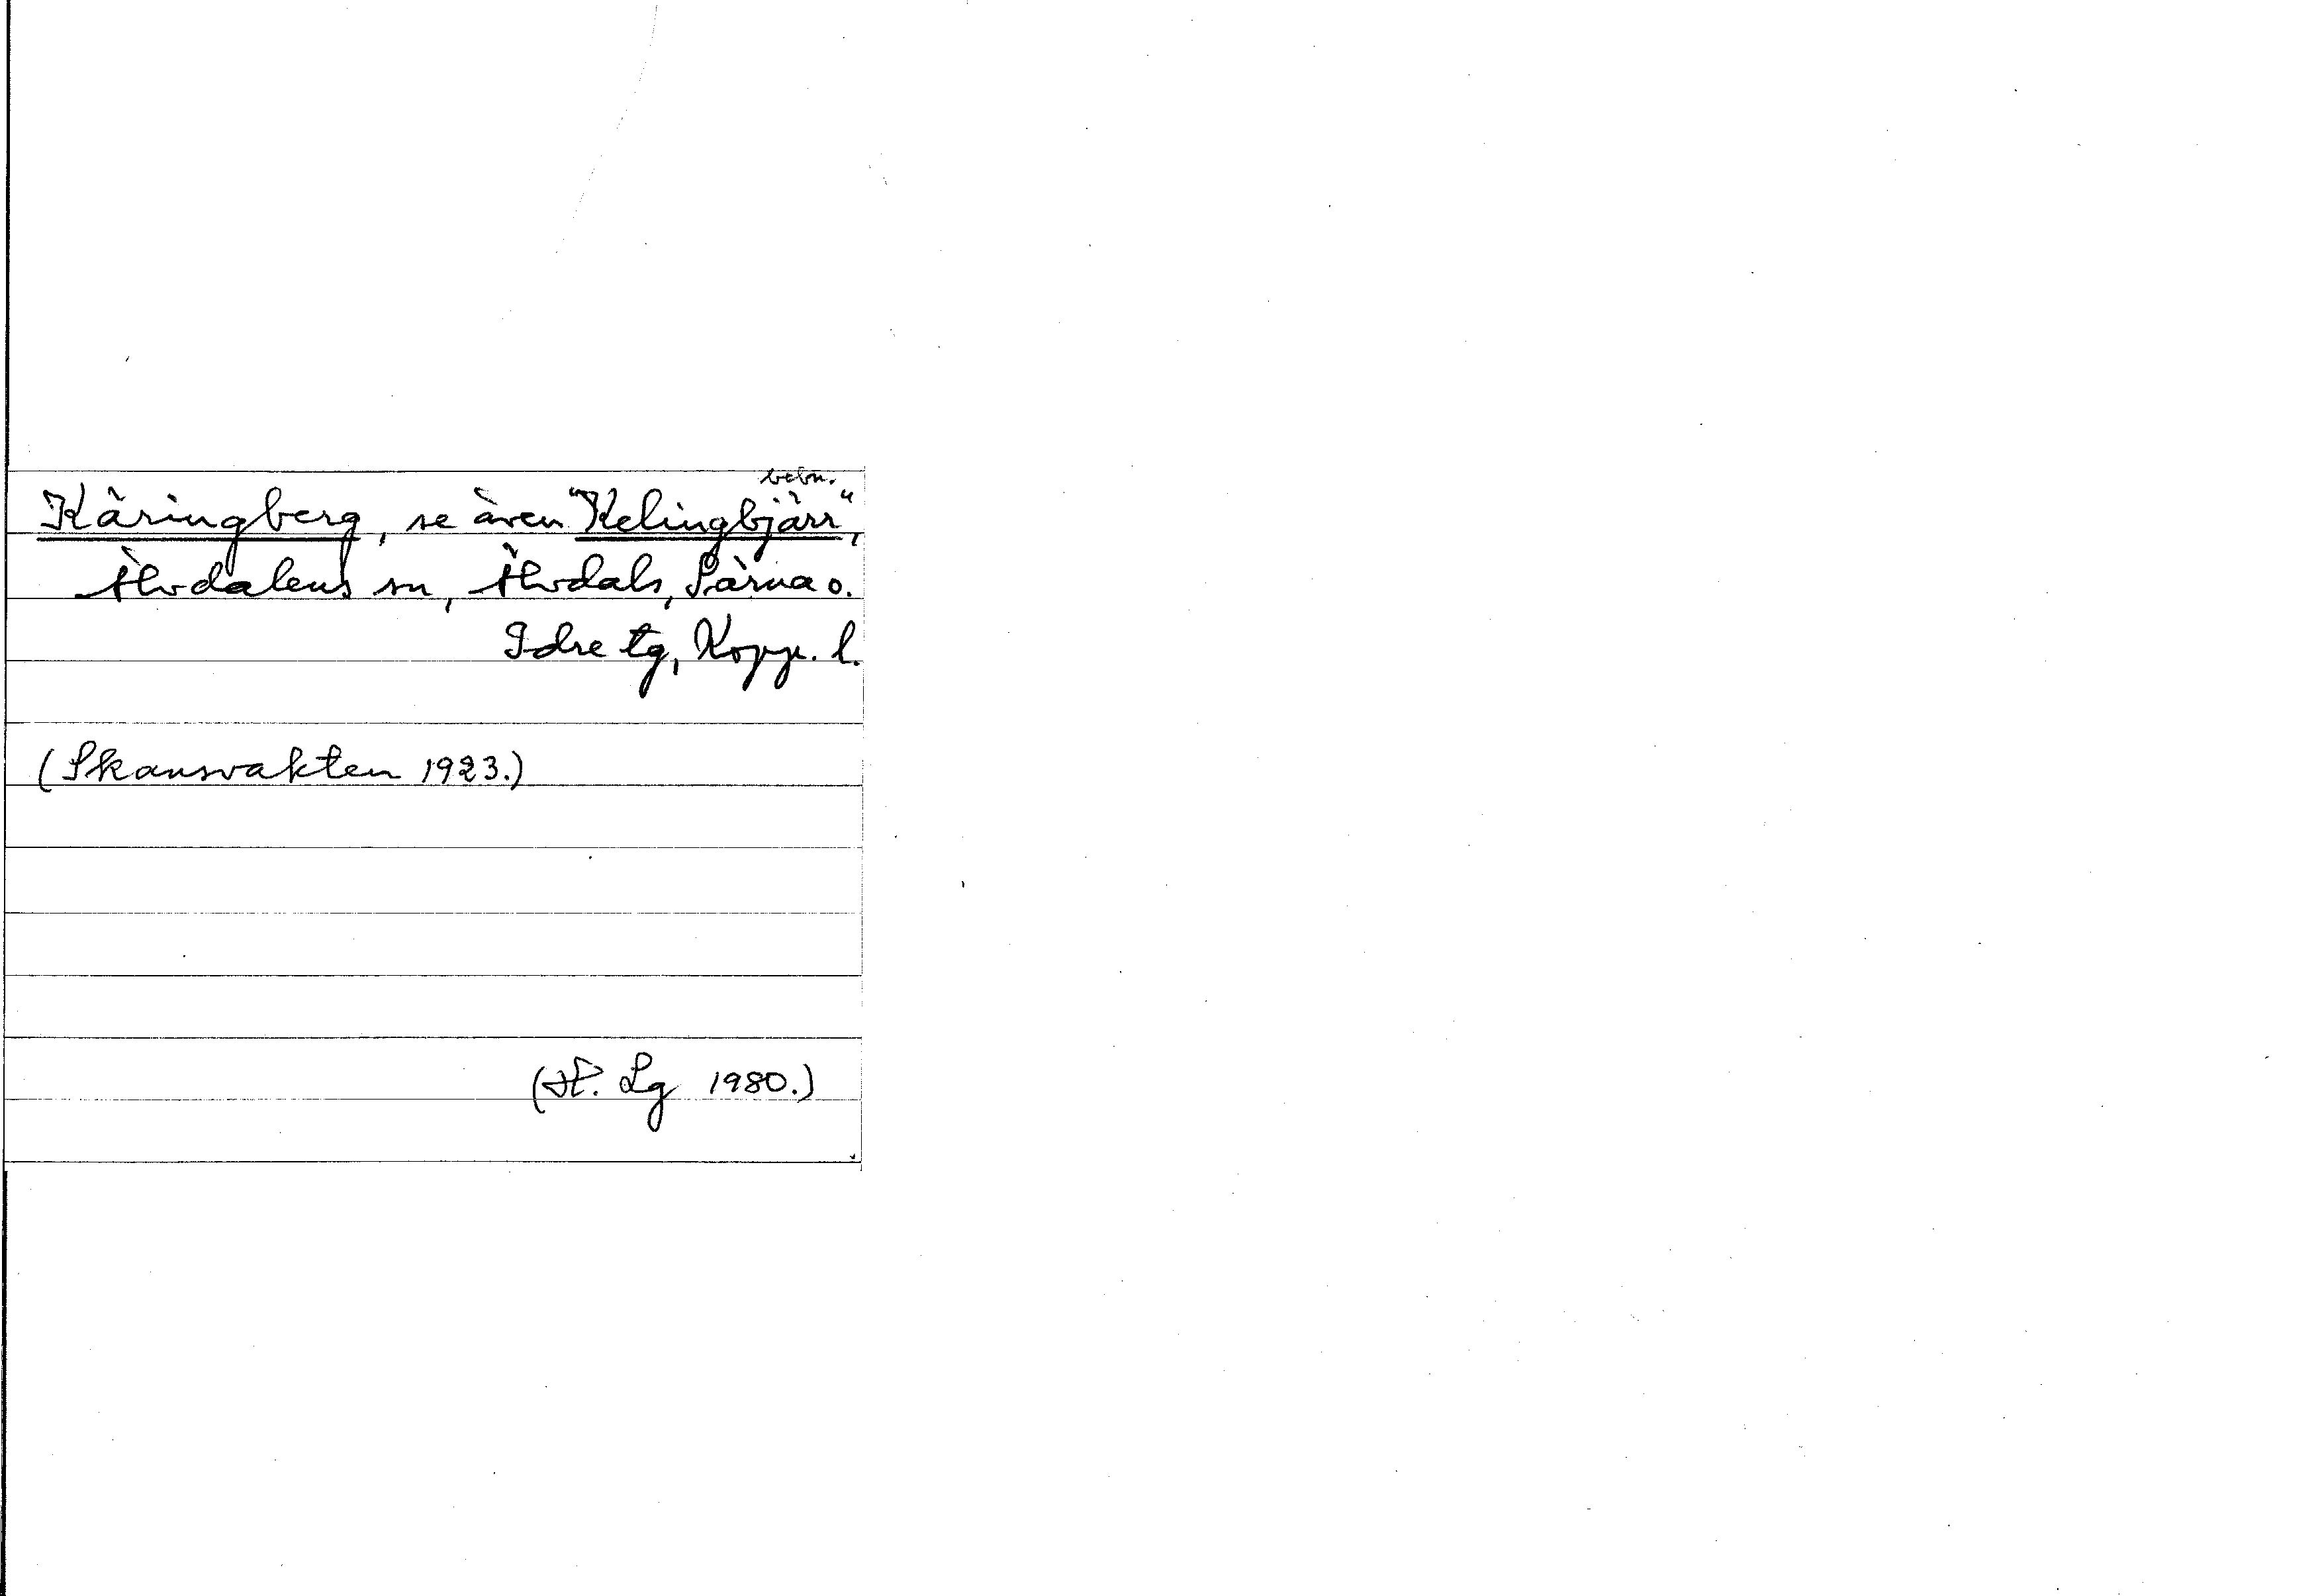 bebn.
Käringberg, se även "Kelingbjärr",
Älvdalens sn, Älvdals, Särna o.
Idre tg, Kopp. l.
(Skansvakten 1923.)
(H. Lg 1980.)